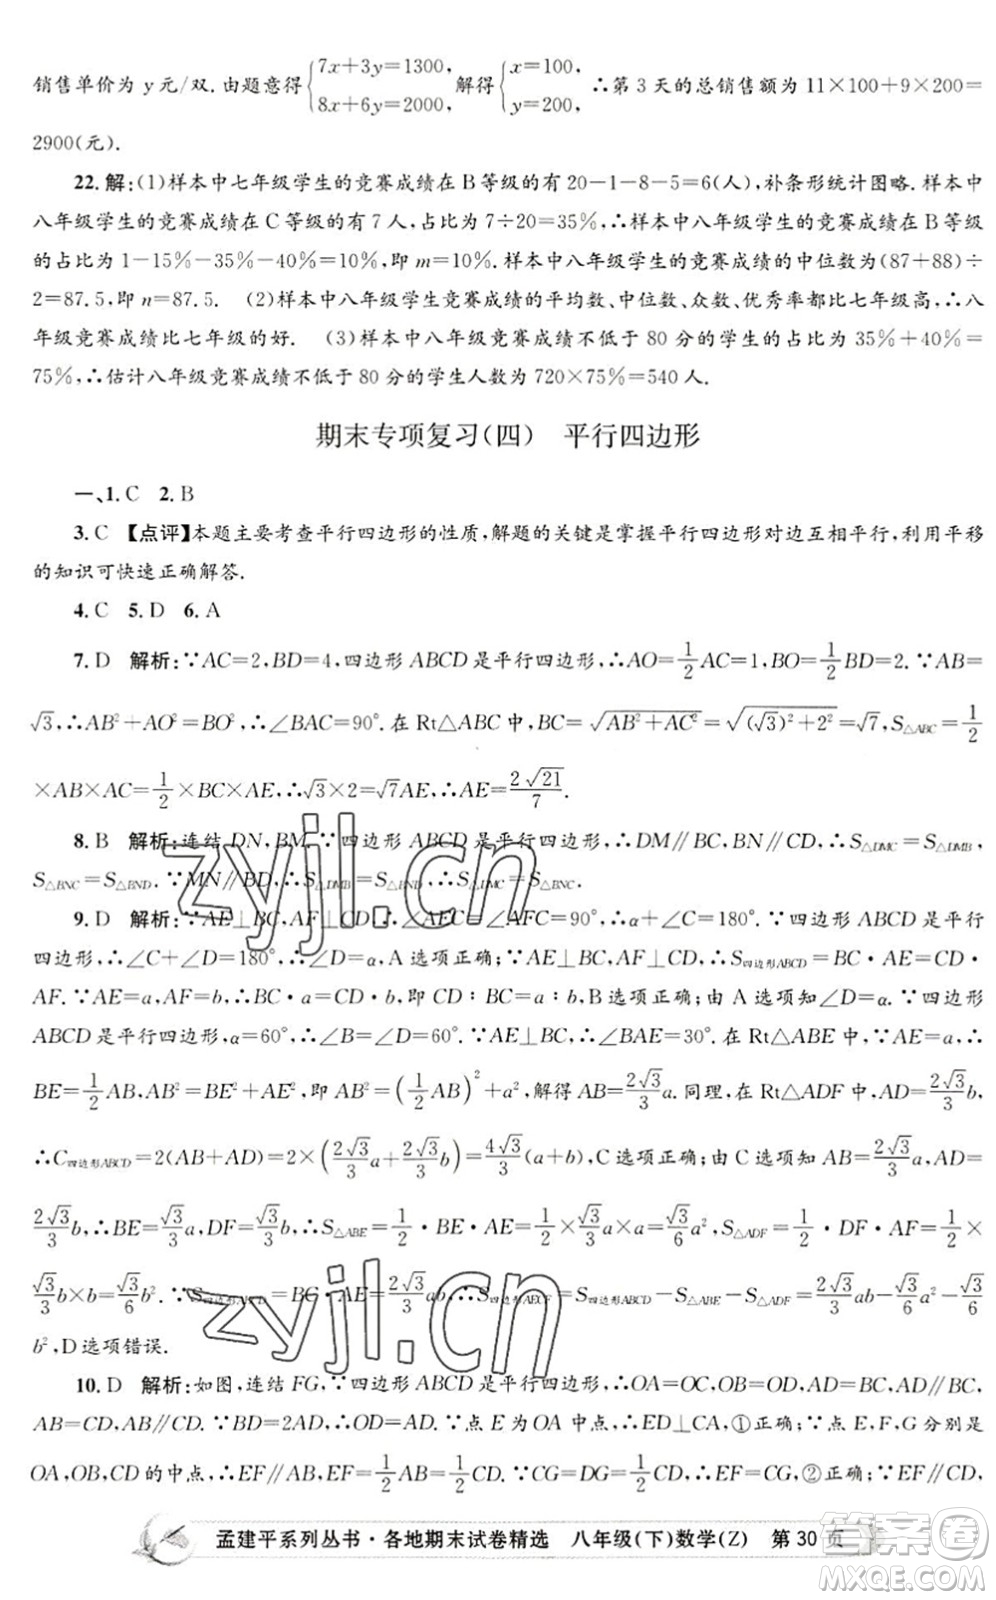 销售单价为 y 元/双. 由题意得{7x+3y=1300, 8x+6y=2000, 解得{x=100, y=200, ∴第 3 天的总销售额为 11×100+9×200=
2900(元).
22. 解:(1)样本中七年级学生的竞赛成绩在 B 等级的有 20-1-8-5=6(人),补条形统计图略. 样本中
八年级学生的竞赛成绩在 C 等级的有 7 人,占比为 7÷20=35%,∴样本中八年级学生的竞赛成绩在 B 等级
的占比为 1-15%-35%-40%=10%,即 m=10%. 样本中八年级学生的竞赛成绩的中位数为(87+88)÷
2=87.5,即 n=87.5. (2)样本中八年级学生竞赛成绩的平均数、中位数、众数、优秀率都比七年级高,∴八
年级竞赛成绩比七年级的好. (3)样本中八年级竞赛成绩不低于 80 分的学生的占比为 35%+40%=
75%,∴估计八年级竞赛成绩不低于 80 分的学生人数为 720×75%=540 人.
期末专项复习(四) 平行四边形
一、1. C 2. B
3. C 【点评】本题主要考查平行四边形的性质,解题的关键是掌握平行四边形对边互相平行,利用平移
的知识可快速正确解答.
4. C 5. D 6. A
7. D 解析:∵AC=2,BD=4,四边形 ABCD 是平行四边形,∴AO=1/2AC=1,BO=1/2BD=2. ∵AB=
√3,∴AB²+AO²=BO²,∴∠BAC=90°. 在 Rt△ABC 中,BC=√(AB²+AC²)=√((√3)²+2²)=√7,S△ABC=1/2
×AB×AC=1/2×BC×AE,∴√3×2=√7AE,∴AE=2√21/7.
8. B 解析:连结 DN,BM,∵四边形 ABCD 是平行四边形,∴DM∥BC,BN∥CD,∴S△DMC=S△DMB,
S△BNC=S△BND. ∵MN∥BD,∴S△DMB=S△BND,∴S△DMC=S△BNC.
9. D 解析:∵AE⊥BC,AF⊥CD,∴∠AEC=∠AFC=90°,∴α+∠C=180°. ∵四边形 ABCD 是平行
四边形,∴∠C+∠D=180°,∴∠D=α,A 选项正确;∵AE⊥BC,AF⊥CD,∴S四边形ABCD=BC·AE=CD·
AF. ∵AE=a,AF=b,∴BC·a=CD·b,即 CD∶BC=a∶b,B 选项正确;由 A 选项知∠D=α. ∵四边形
ABCD 是平行四边形,α=60°,∴∠B=∠D=60°. ∵AE⊥BC,∴∠BAE=30°. 在 Rt△ABE 中,∵AE=a,∴
BE=1/2AB,AB²=BE²+AE²,即 AB²=(1/2AB)²+a²,解得 AB=2√3/3a. 同理,在 Rt△ADF 中,AD=2√3/3b,
∴C四边形ABCD=2(AB+AD)=2×(2√3/3a+2√3/3b)=4√3/3(a+b),C 选项正确;由 C 选项知 AB=2√3/3a,AD=
2√3/3b,∴BE=√3/3a,DF=√3/3b,∴S△ABE=1/2·BE·AE=1/2×√3/3a×a=√3/6a²,S△ADF=1/2·DF·AF=1/2×
√3/3b×b=√3/6b². ∵S四边形ABCD=BC·AE=2√3/3ab,∴S四边形AECF=S四边形ABCD-S△ABE-S△ADF=2√3/3ab-√3/6a²-√3/6
b²,D 选项错误.
10. D 解析:如图,连结 FG,∵四边形 ABCD 是平行四边形,∴OA=OC,OB=OD,AD∥BC,AD=BC,
AB=CD,AB∥CD. ∵BD=2AD,∴OD=AD. ∵点 E 为 OA 中点,∴ED⊥CA,①正确;∵点 E,F,G 分别是
OA,OB,CD 的中点,∴EF∥AB,EF=1/2AB=1/2CD. ∵CG=DG=1/2CD,∴EF=CG,②正确;∵EF∥CD,
孟建平系列丛书·各地期末试卷精选 八年级(下)数学(Z) 第 30 页
zyjl.cn
zyjl.cn
答案圈
MXQE.COM